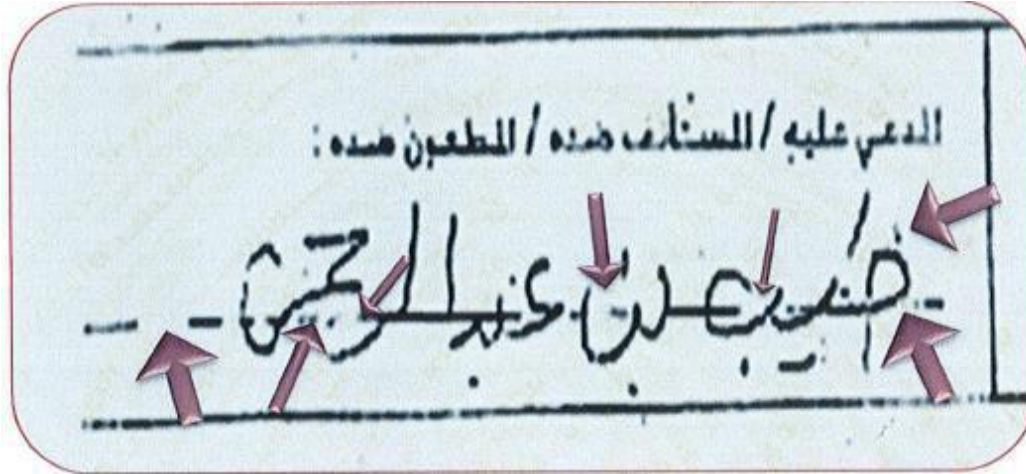 المدعي عليه / المستأنف ضده / المطعون ضده :
بن عبد الرحمن